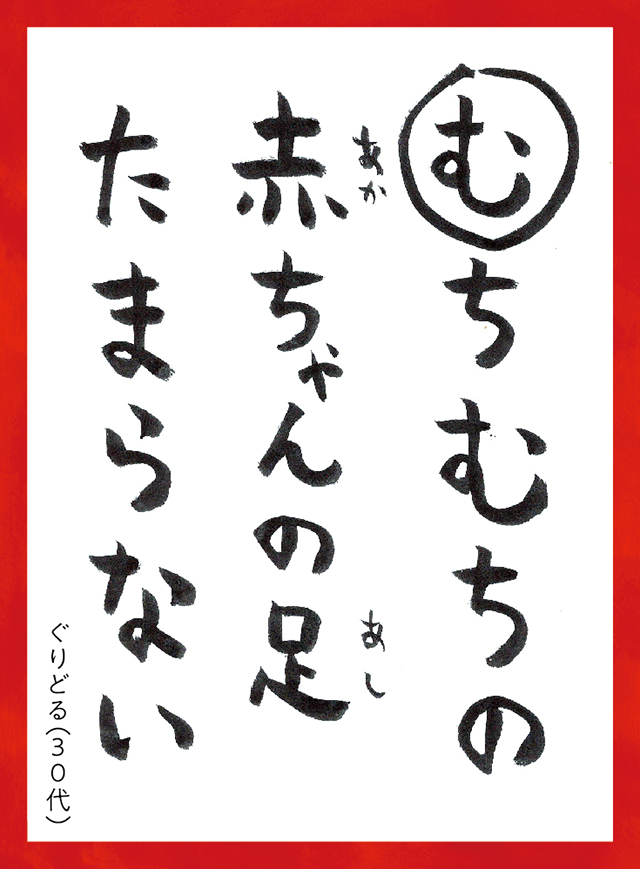 むちむちの
赤ちゃんの足
あか
あし
たまらない
ぐりどる(30代)